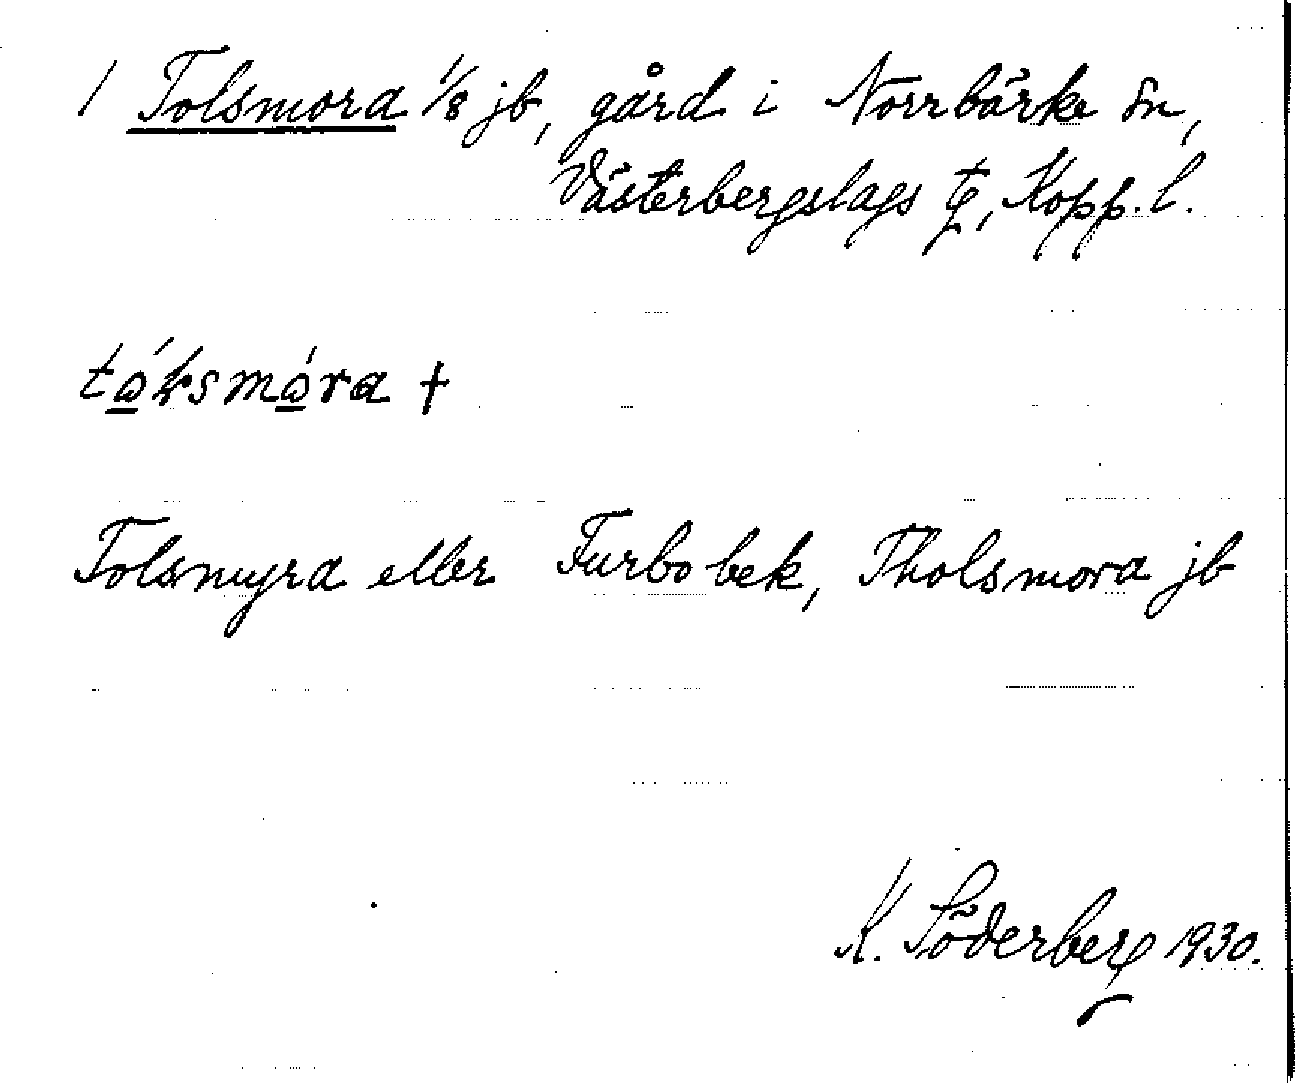 1 Tolsmora 1/8 jb, gård i Norrbärke sn,
Västerbergslags tg, Kopp. l.
Tolsmyra eller Furbo bek, Tholsmora jb
K. Söderberg 1930.